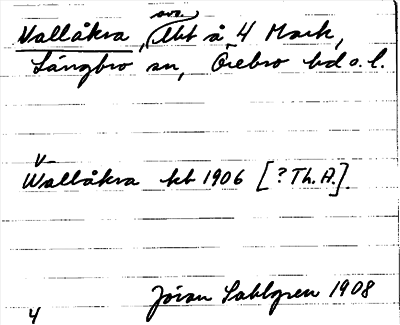 svo.
Vallåkra, Abt å 4 Mark,
Långbro sn, Örebro hd o. l.
V
Wallåkra kb 1906 [? Th. A.].
Jöran Sahlgren 1908
4